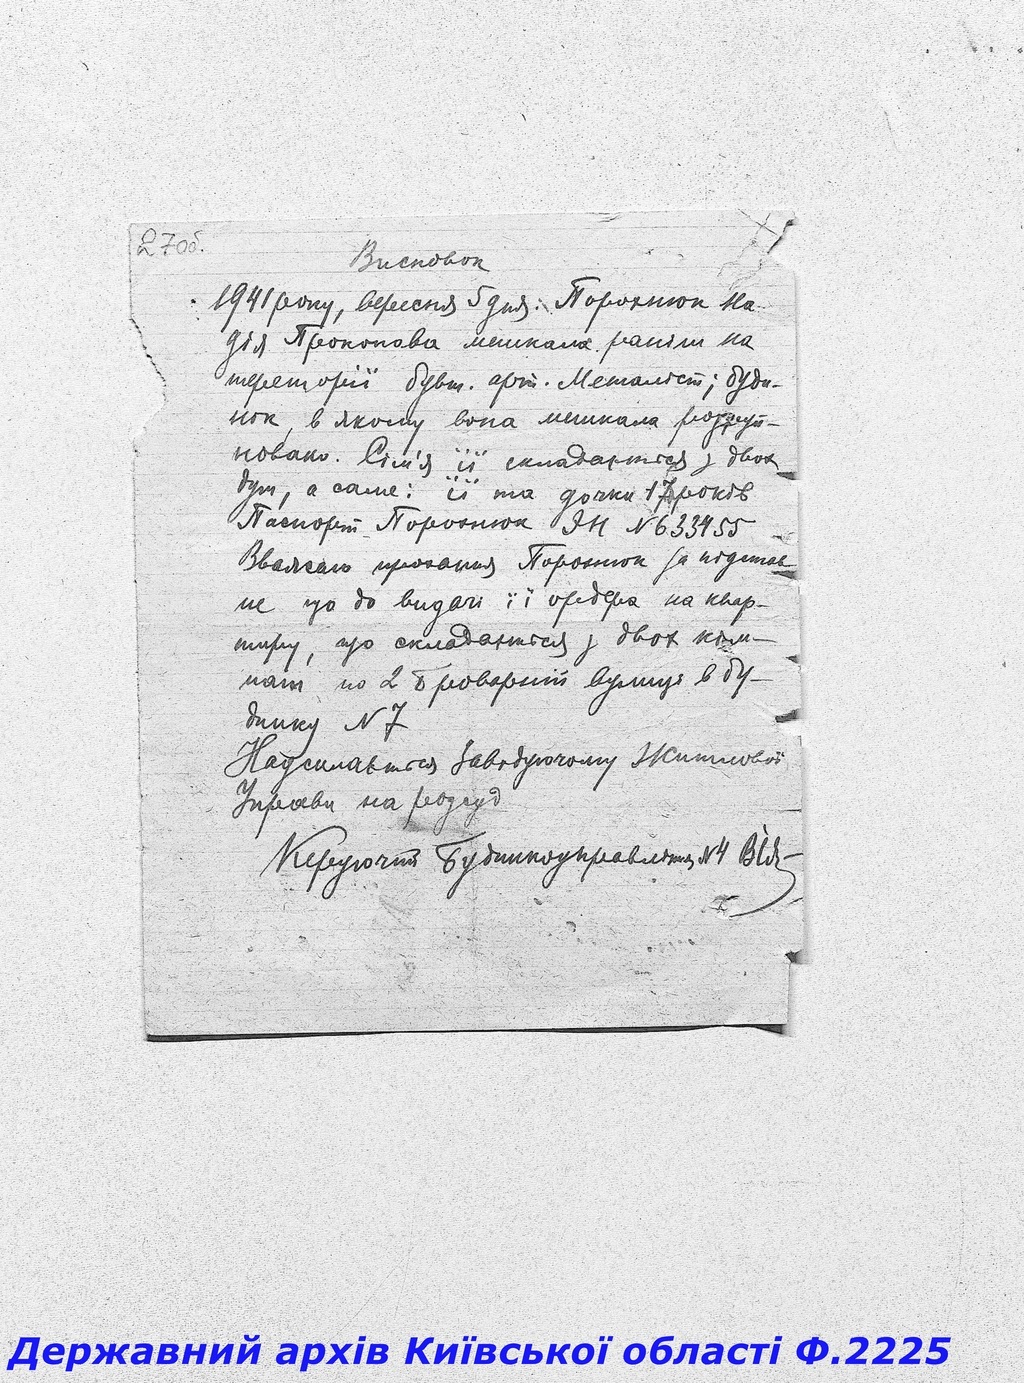 27об.
Висновок
1941 року, вересня 5 дня. Порохнюк На
дія Прокопова мешкала раніш на
територіїї бувш. арт. Металіст; буди-
нок, в якому вона мешкала розруй-
новано. Сім'я її складається з двох
душ, а саме: її та дочки 17 років
Паспорт Порохнюк ЯН №633455
Вважаю прохання Порохнюк за підстав
не що до видачі її ордера на квар-
тиру, що складається з двох кім-
нат по 2 Броварній вулиці в бу-
динку N 7
Надсилається Завідуючому Житлової
Управи на розсуд
Керуючий Будинкоуправління №4
Державний архів Київської області Ф.2225